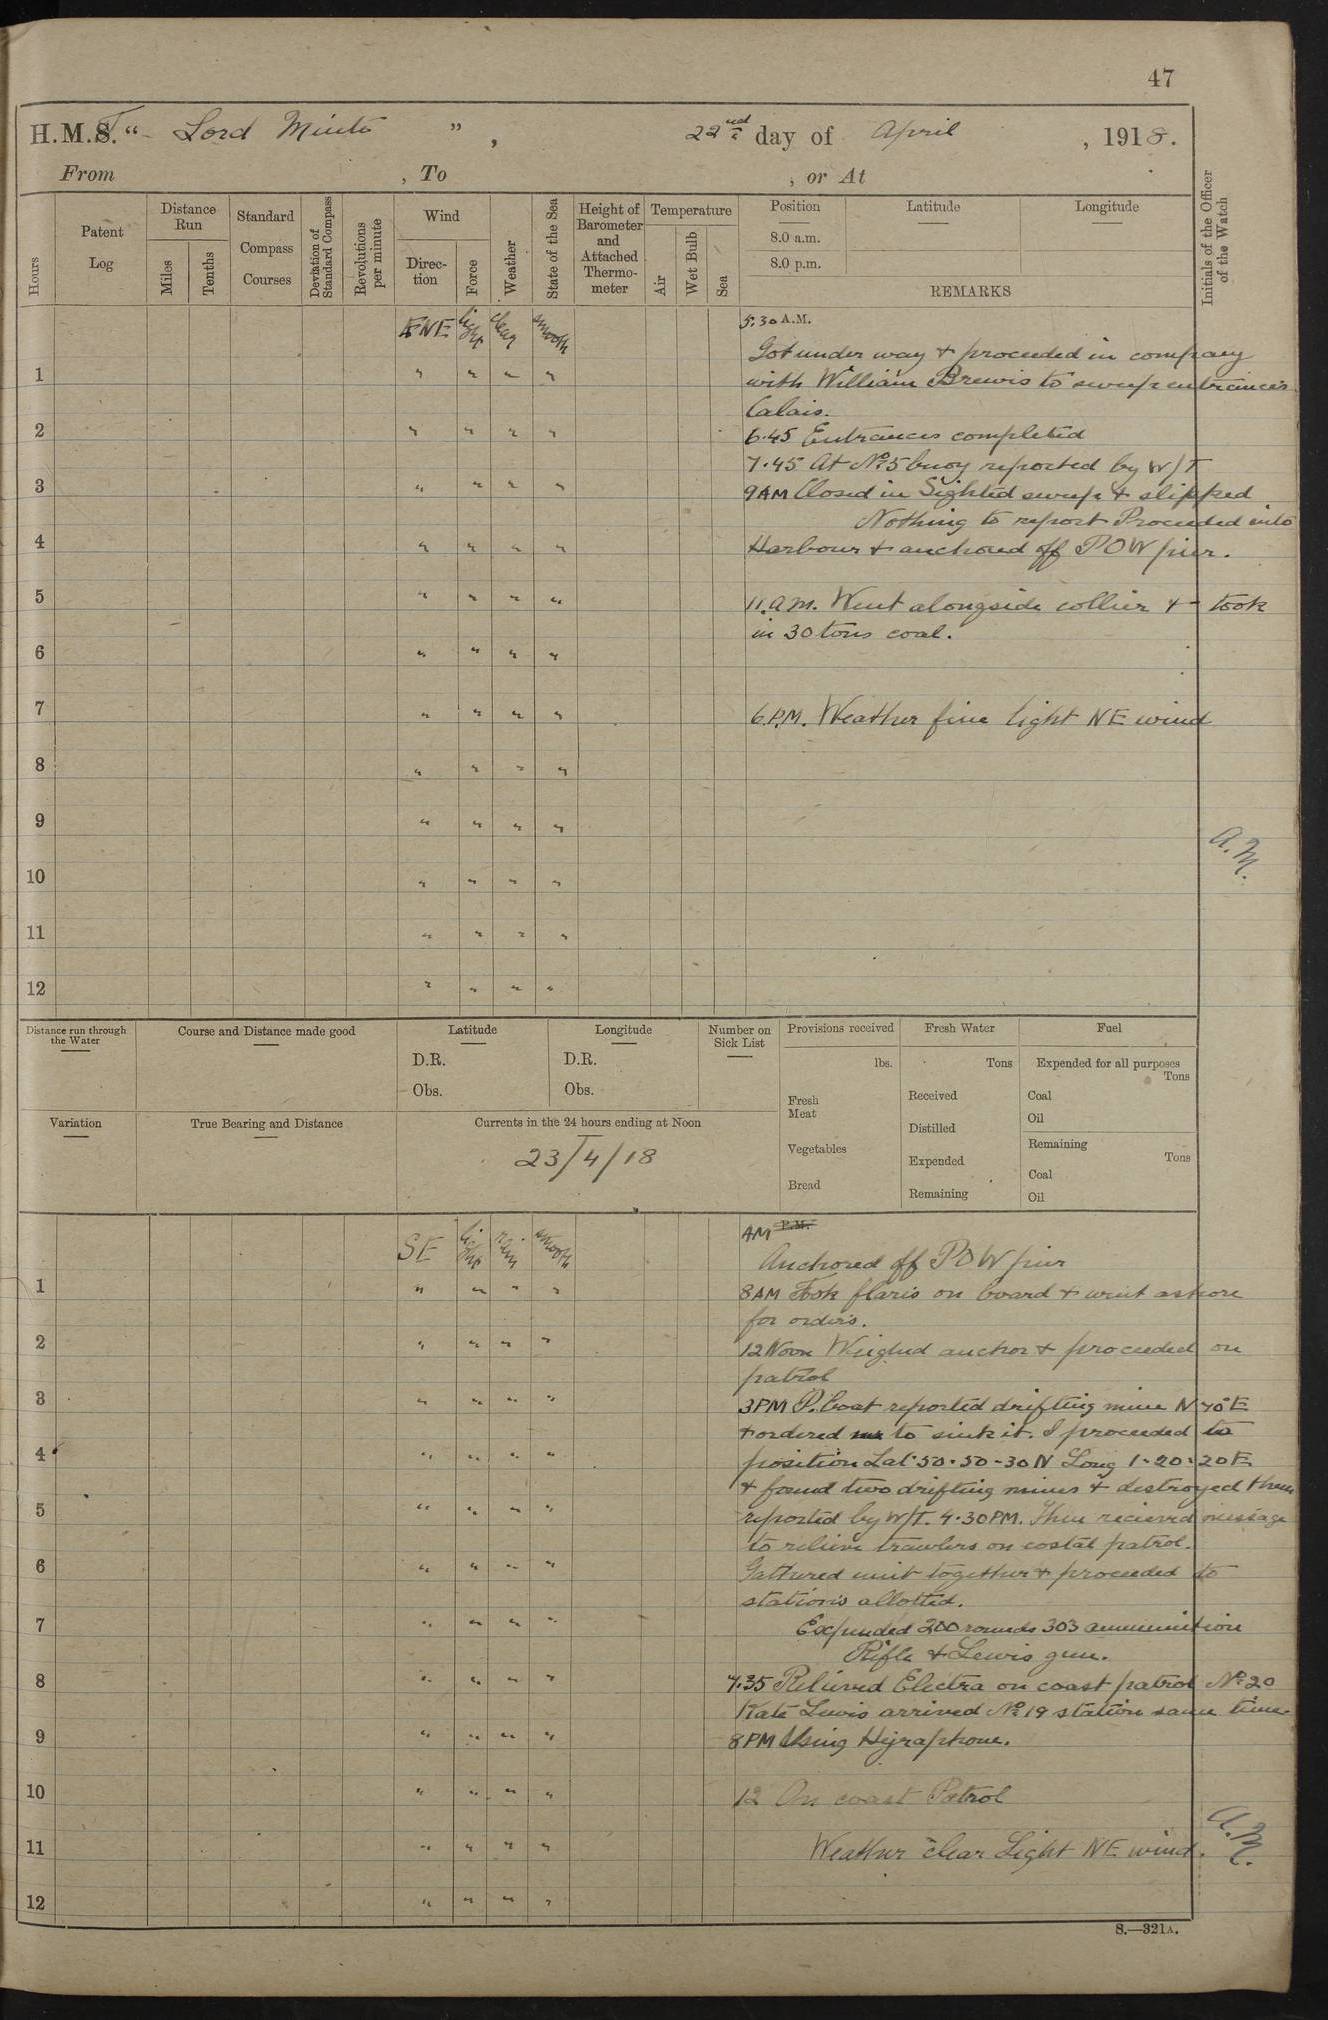 47
H.M.S.T. "Lord Minto", 22nd day of April, 1918.
From , To , or At
Hours
Patent Log
Distance Run
Miles
Tenths
Standard Compass Courses
Deviation of Standard Compass
Revolutions per minute
Wind
Direction
Force
Weather
State of the Sea
Height of Barometer and Attached Thermometer
Temperature
Air
Wet Bulb
Sea
Position
8.0 a.m.
8.0 p.m.
Latitude
Longitude
REMARKS
Initials of the Officer of the Watch
ENE light clear smooth
5.30 A.M.
Got under way & proceeded in company
1 " " " " with William Brewis to sweep entrances
Calais.
2 " " " " 6.45 Entrances completed
7.45 At No 5 buoy reported by W/T
3 " " " " 9AM Closed in Sighted sweep & slipped
Nothing to report Proceeded into
4 " " " " Harbour & anchored off POW pier.
5 " " " " 11.a.m. Went alongside collier & took
in 30 tons coal.
6 " " " "
7 " " " " 6P.M. Weather fine light NE wind
8 " " " "
9 " " " "
A.M.
10 " " " "
11 " " " "
12 " " " "
Distance run through the Water
Course and Distance made good
Latitude
D.R.
Obs.
Longitude
D.R.
Obs.
Number on Sick List
Provisions received
lbs.
Fresh Meat
Vegetables
Bread
Fresh Water
Tons
Received
Distilled
Expended
Remaining
Fuel
Expended for all purposes
Tons
Coal
Oil
Remaining
Tons
Coal
Oil
Variation
True Bearing and Distance
Currents in the 24 hours ending at Noon
23/4/18
SE light rain smooth
AM P.M.
Anchored off POW pier
1 " " " " 8AM Took flares on board & went ashore
for orders.
2 " " " " 12 Noon Weighed anchor & proceeded on
patrol
3 " " " " 3PM P. boat reported drifting mine N 70° E
& ordered me to sink it. I proceeded to
4 " " " " position Lat 50-50-30N Long 1-20-20E
& found two drifting mines & destroyed them
5 " " " " reported by W/T. 4.30PM. Then recieved message
to relieve trawlers on costal patrol.
6 " " " " Gathered unit together & proceeded to
stations allotted.
7 " " " " Expended 200 rounds 303 ammunition
Rifle & Lewis gun.
8 " " " " 7.35 Relieved Electra on coast patrol No 20
Kate Lewis arrived No 19 station same time
9 " " " " 8PM Using Hyraphone.
10 " " " " 12 On coast Patrol
11 " " " " Weather clear Light NE wind.
A.M.
12 " " " "
S.—321A.